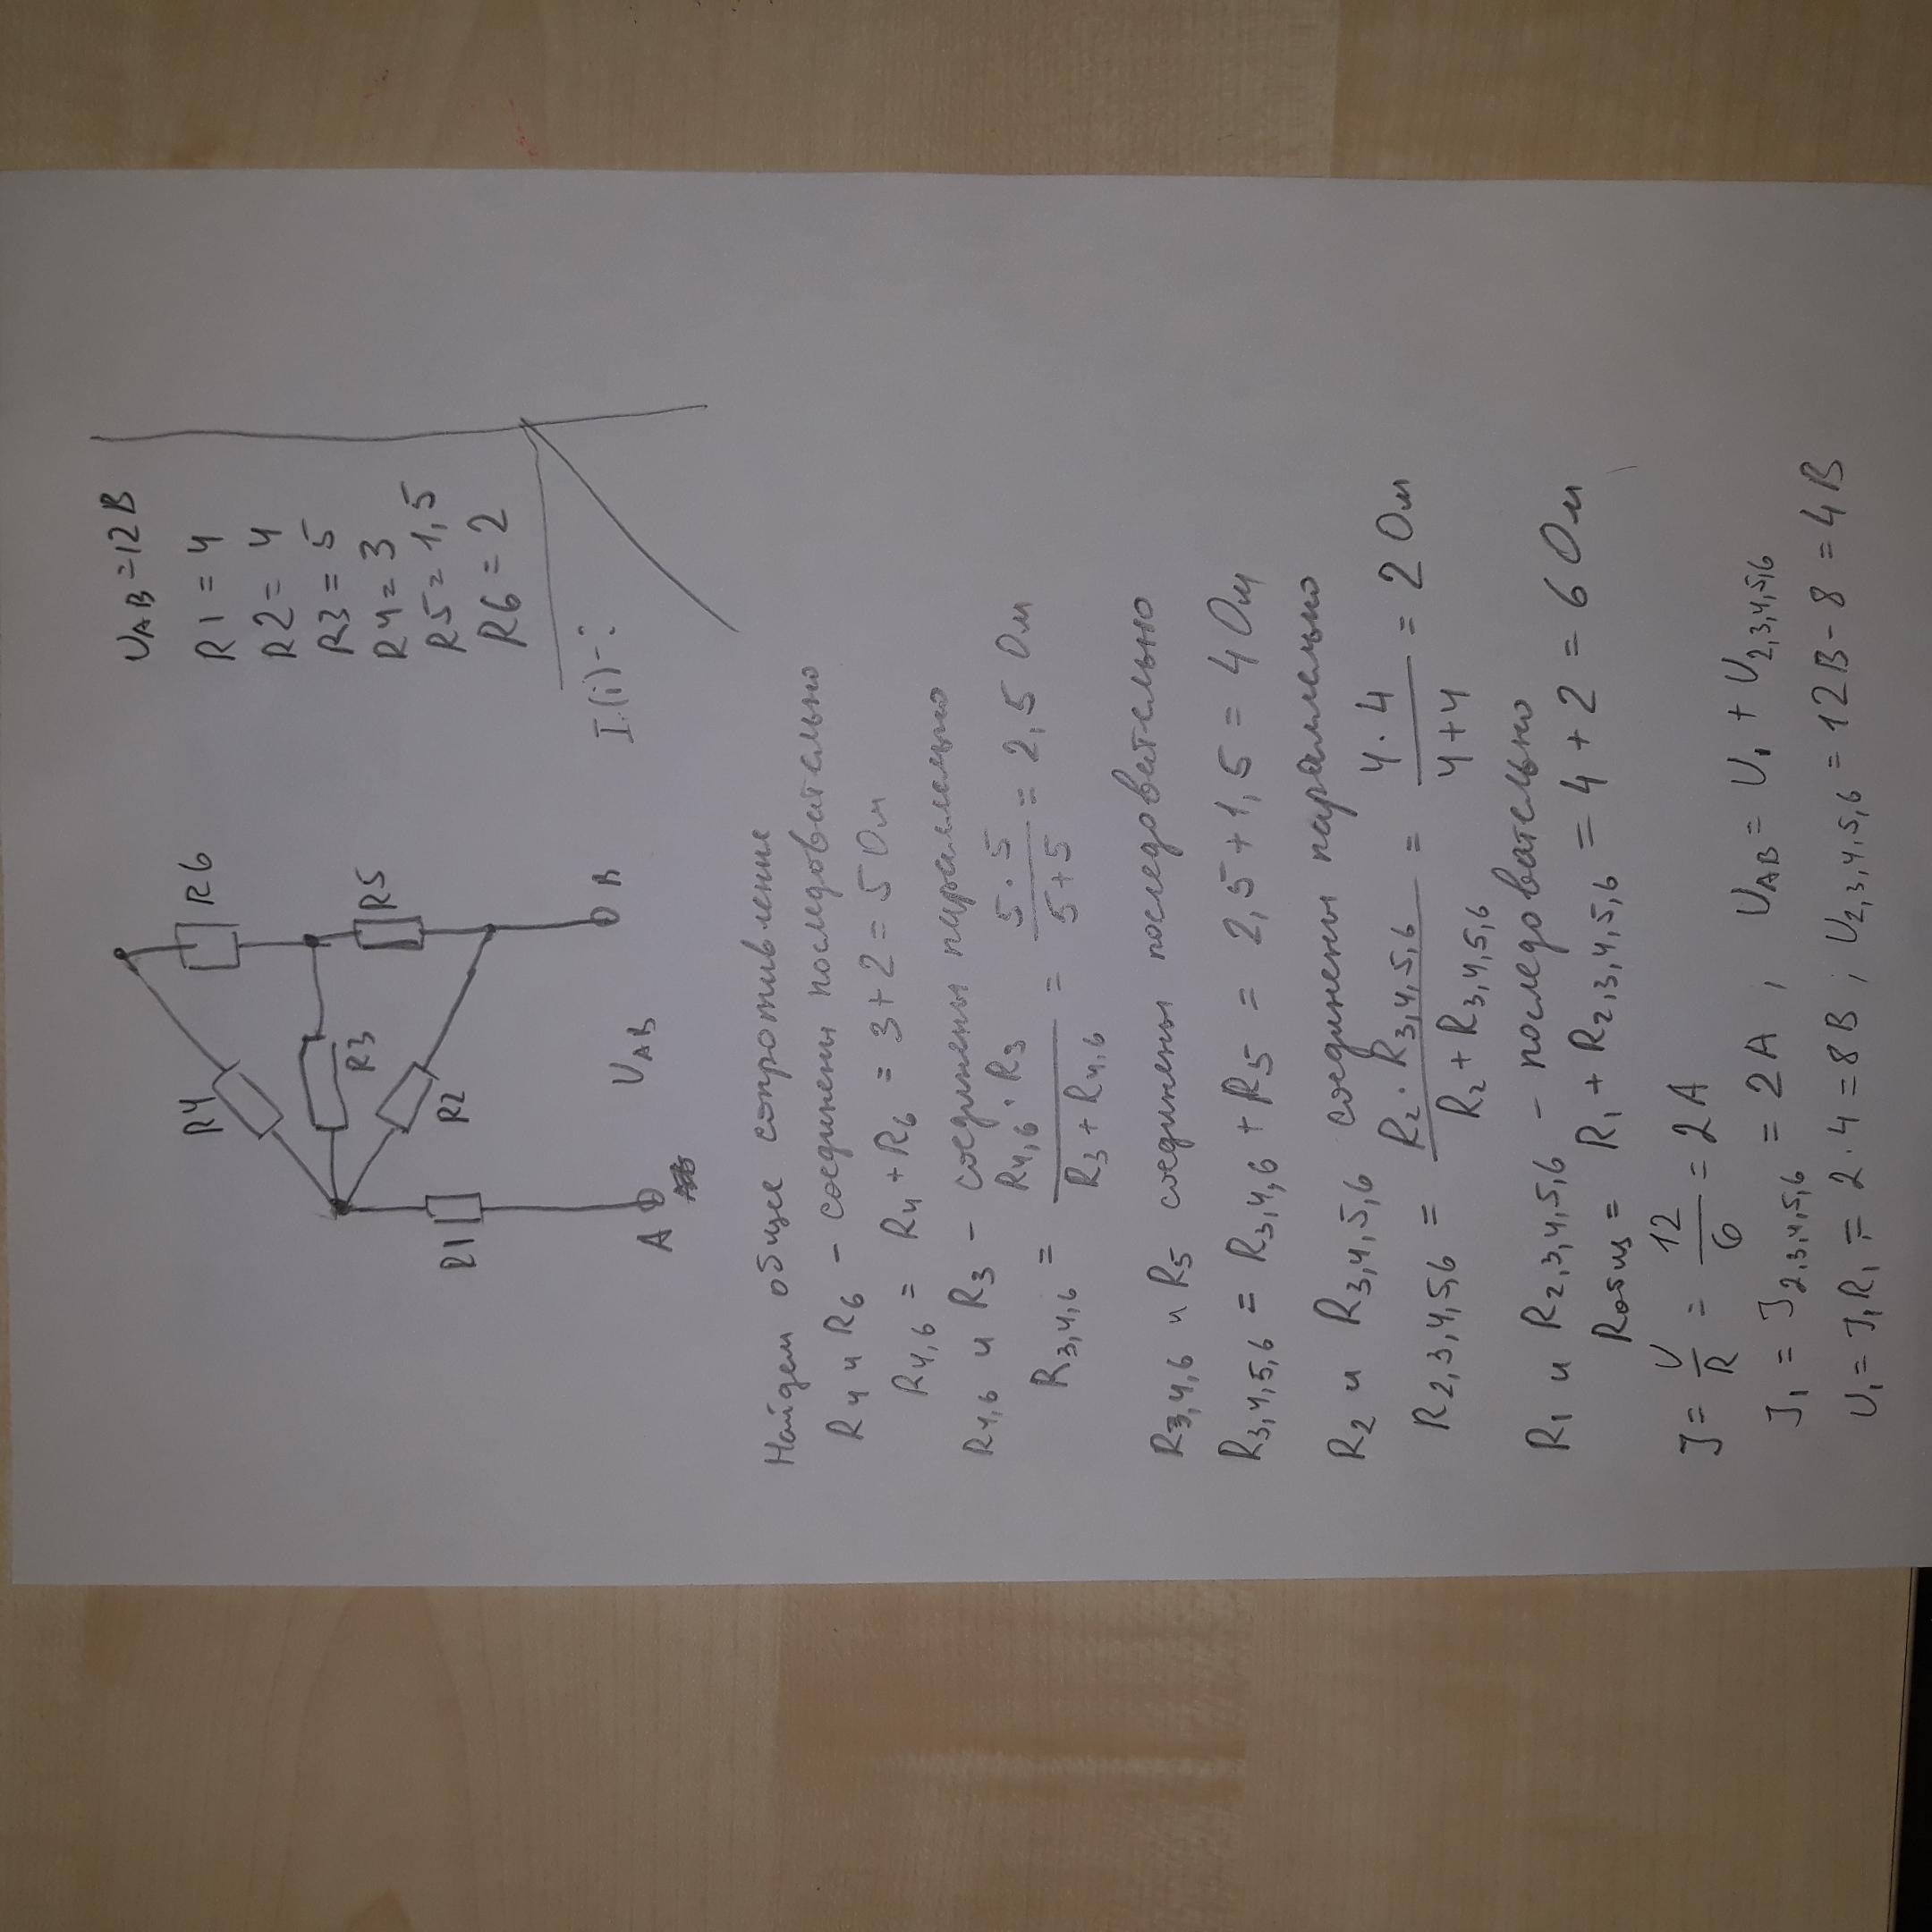 U_AB = 12В
R1 = 4
R2 = 4
R3 = 5
R4 = 3
R5 = 1,5
R6 = 2
I.(i)-:
R4
R6
R3
R5
R2
R1
A
U_AB
B
Найдем общее сопротивление
R4 и R6 - соединены последовательно
R4,6 = R4 + R6 = 3 + 2 = 5 Ом
R4,6 и R3 - соединены параллельно
R3,4,6 = R4,6 · R3 / R3 + R4,6 = 5 · 5 / 5 + 5 = 2,5 Ом
R3,4,6 и R5 соединены последовательно
R3,4,5,6 = R3,4,6 + R5 = 2,5 + 1,5 = 4 Ом
R2 и R3,4,5,6 соединены параллельно
R2,3,4,5,6 = R2 · R3,4,5,6 / R2 + R3,4,5,6 = 4 · 4 / 4 + 4 = 2 Ом
R1 и R2,3,4,5,6 - последовательно
Rобщ = R1 + R2,3,4,5,6 = 4 + 2 = 6 Ом
J = U / R = 12 / 6 = 2 А
J1 = J2,3,4,5,6 = 2 А ; U_AB = U1 + U2,3,4,5,6
U1 = J1R1 = 2 · 4 = 8В ; U2,3,4,5,6 = 12В - 8 = 4В